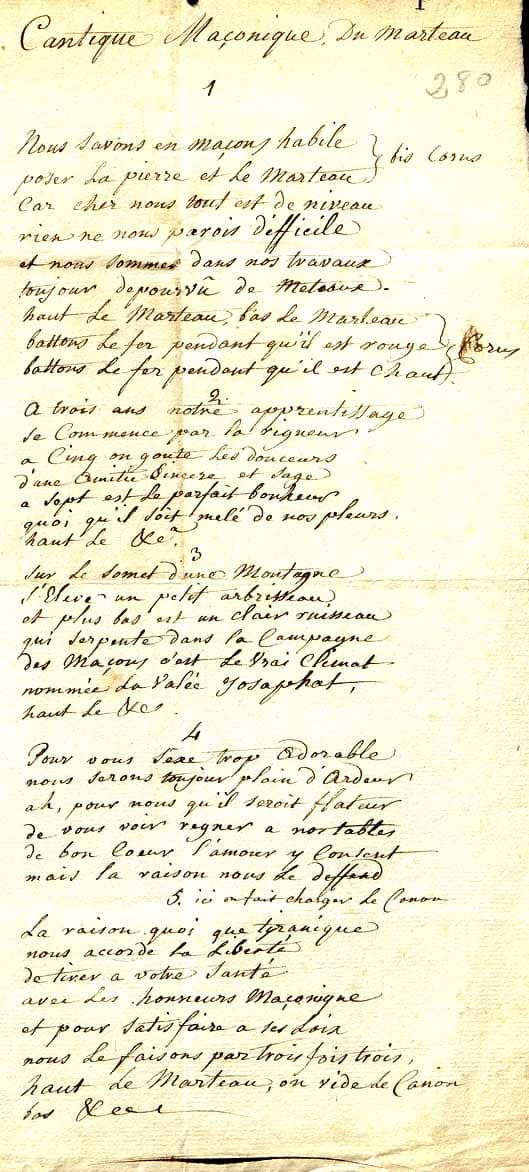 Cantique Maçonique. Du Marteau
280
1
Nous Savons en maçons habile
poser La pierre et Le Marteau } bis Corus
Car cher nous tout est de niveau
rien ne nous parois défficile
et nous sommes dans nos travaux
toujour depourvû de Meteaux.
haut Le Marteau, bas Le Marteau
battons Le fer pendant qu'il est rouge } Corus
battons Le fer pendant qu'il est Chaut.
2
A trois ans notre apprentissage
se Commence par La rigueur
a Cinq on goute Les douceurs
d'une Amitié Sincere et sage
a Sept est Le parfait bonheur
quoi qu'il soit melé de nos pleurs.
haut Le &c.a
3
Sur Le somet d'une Montagne
S'Eleve un petit arbrisseau
et plus bas est un clair ruisseau
qui serpente dans la Campagne
des Maçons c'est Le Vrai Climat
nommée La Valée Josaphat,
haut Le &c.
4
Pour vous Sexe trop Adorable
nous serons toujour plain d'Ardeur
ah, pour nous qu'il seroit flateur
de vous voir regner a nos tables
de bon Coeur l'amour y Consent
mais la raison nous Le deffend
5. ici on fait charger Le Canon
La raison quoi que tyranique
nous accorde La Liberté
de tirer a votre Santé
avec Les honneurs Maçonique
et pour satisfaire a ses Loix
nous Le faisons par trois fois trois,
haut Le Marteau, on vide Le Canon
bas &c